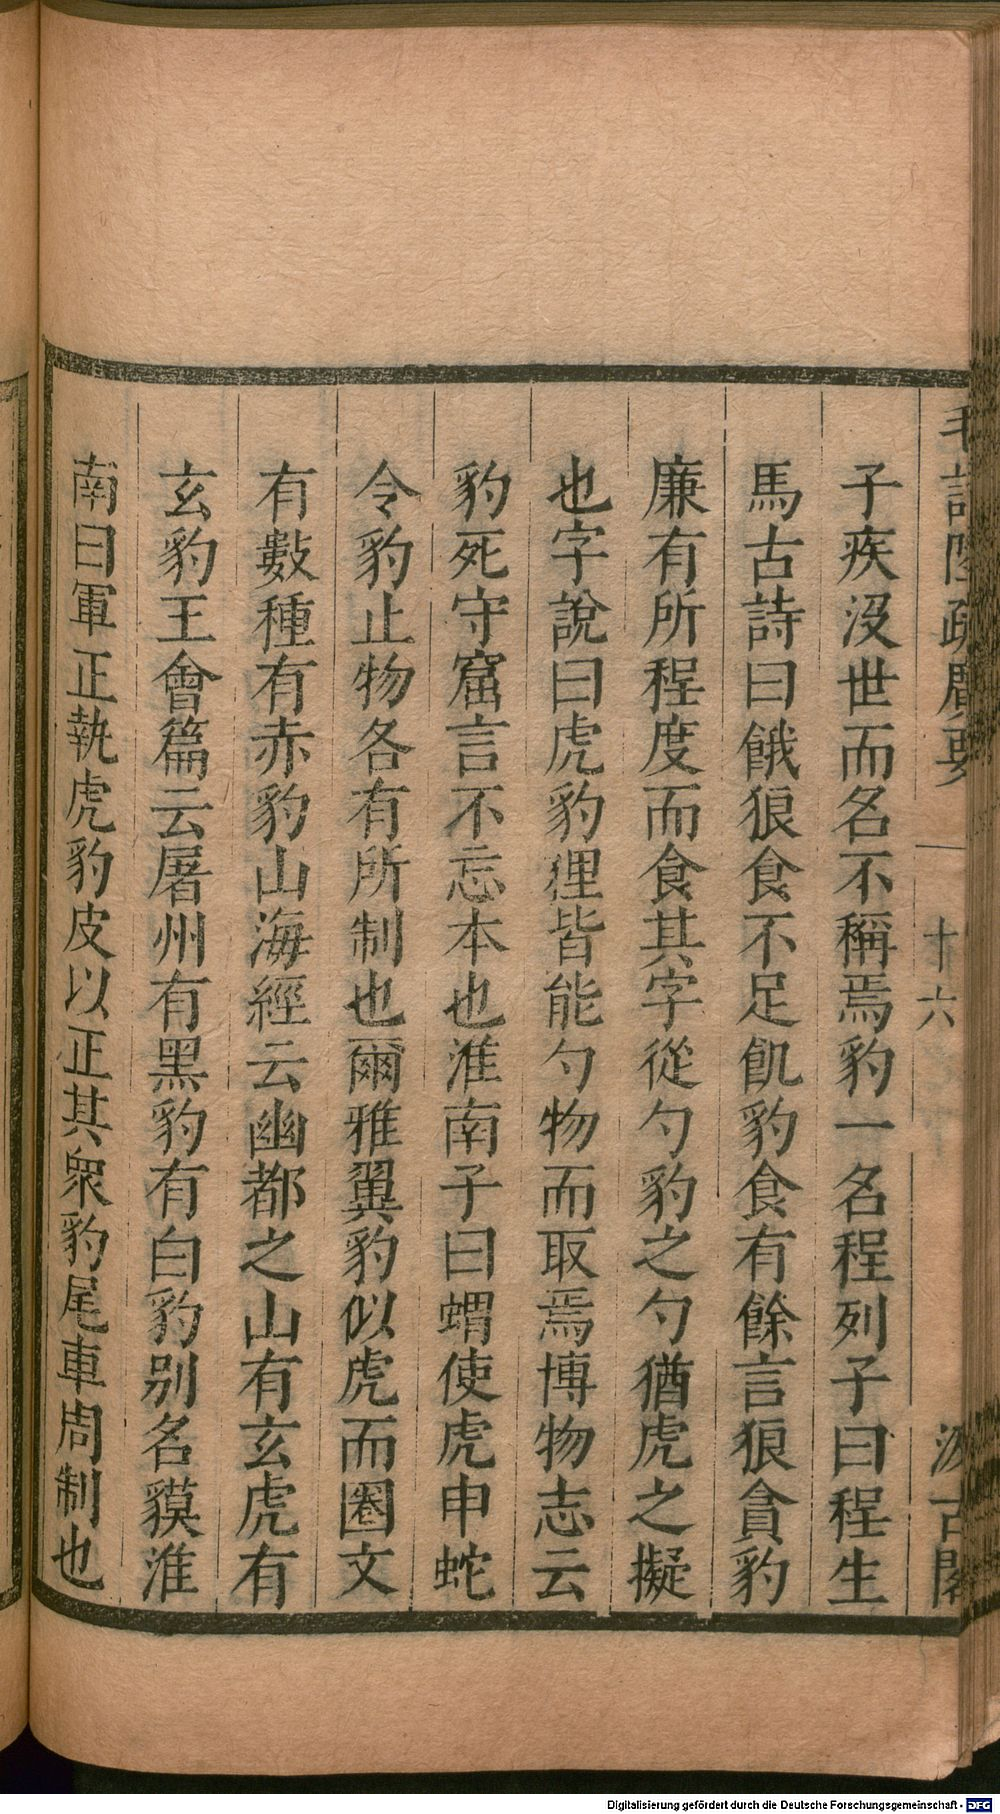 毛詩陸疏廣要
十六
汲古閣
子疾沒世而名不稱焉豹一名程列子曰程生
馬古詩曰餓狼食不足飢豹食有餘言狼貪豹
廉有所程度而食其字從勺豹之勺猶虎之擬
也字說曰虎豹狸皆能勺物而取焉博物志云
豹死守窟言不忘本也淮南子曰蝟使虎申蛇
令豹止物各有所制也爾雅翼豹似虎而圈文
有數種有赤豹山海經云幽都之山有玄虎有
玄豹王會篇云屠州有黑豹有白豹別名貘淮
南曰軍正執虎豹皮以正其衆豹尾車周制也
Digitalisierung gefördert durch die Deutsche Forschungsgemeinschaft - DFG